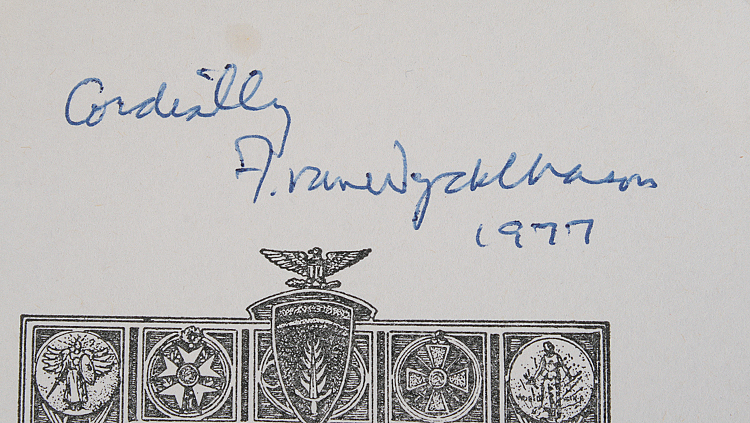 Cordially
F. van Wyck Mason
1977